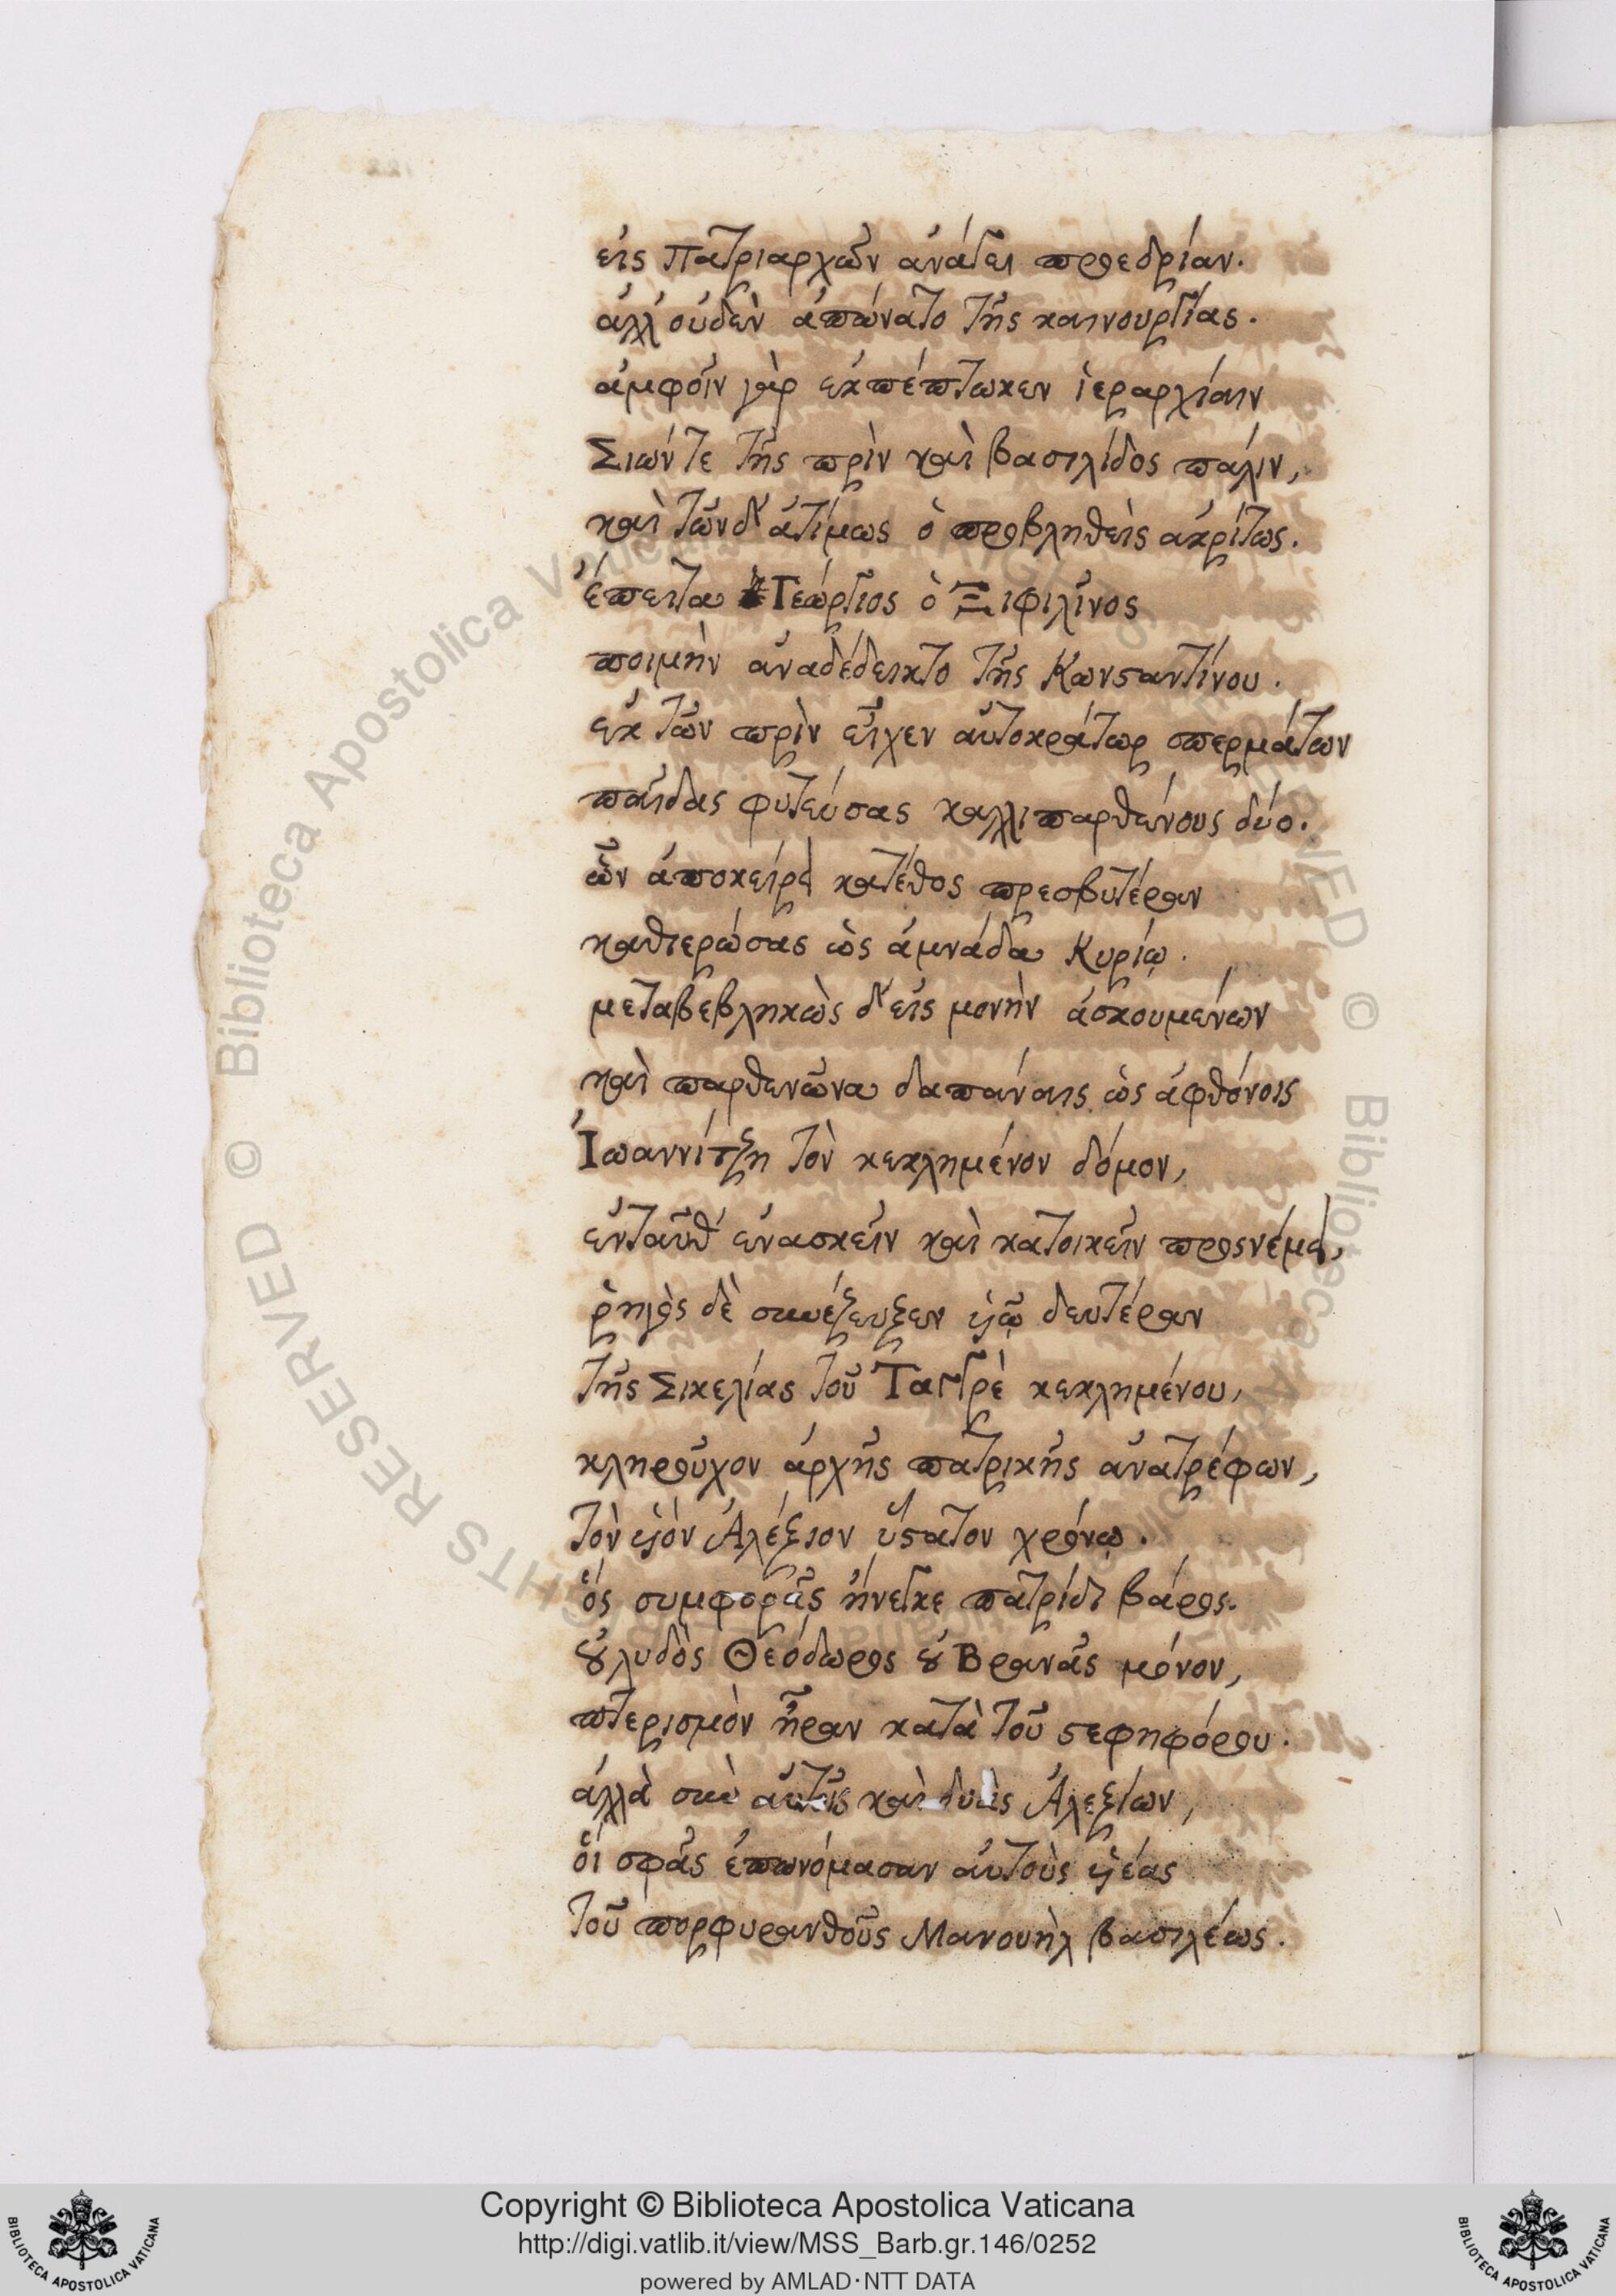 εἰς Πατριαρχῶν ἀνάγει προεδρίαν.
ἀλλ' οὐδὲν ἀπώνατο τῆς καινουργίας.
ἀμφοῖν γὰρ ἐκπέπτωκεν ἱεραρχίαιν
Σιών τε τῆς πρὶν καὶ βασιλίδος πάλιν,
καὶ τῶνδ' ἀτίμως ὁ προβληθεὶς ἀκρίτως.
ἔπειτα Γεώργιος ὁ Ξιφιλῖνος
ποιμὴν ἀναδέδεικτο τῆς Κωνσαντίνου.
ἐκ τῶν πρὶν εἶχεν αὐτοκράτωρ σπερμάτων
παῖδας φυτεύσας καλλιπαρθένους δύο.
ὧν ἀποκείρει κατέθος πρεσβυτέραν
καθιερώσας ὡς ἀμνάδα Κυρίῳ.
μεταβεβληκὼς δ' εἰς μονὴν ἀσκουμένων
καὶ παρθενῶνα δαπάναις ὡς ἀφθόνοις
Ἰωαννίτζη τὸν κεκλημένον δόμον,
ἐνταῦθ' ἐνασκεῖν καὶ κατοικεῖν προςνέμει,
ῥηγὸς δὲ συνέζευξεν υἱῷ δευτέραν
τῆς Σικελίας τοῦ Ταγγρὲ κεκλημένου,
κληροῦχον ἀρχῆς πατρικῆς ἀνατρέφων,
τὸν υἱὸν Ἀλέξιον ὕςατον χρόνῳ.
ὃς συμφορᾶς ἤνεγκε πατρίδι βάρος.
οὐ λυδὸς Θεόδωρος οὐ Βρανᾶς μόνον,
πτερισμὸν ἦραν κατὰ τοῦ ςεφηφόρου.
ἀλλὰ σὺν αὐτοῖς καὶ δυὰς Ἀλεξίων,
οἳ σφᾶς ἐπωνόμασαν αὐτοὺς υἱέας
τοῦ πορφυρανθοῦς Μανουὴλ βασιλέως.
Copyright © Biblioteca Apostolica Vaticana
http://digi.vatlib.it/view/MSS_Barb.gr.146/0252
powered by AMLAD·NTT DATA